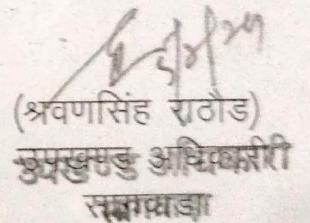 (श्रवणसिंह राठौड)
उपखण्ड अधिकारी
सागवाडा